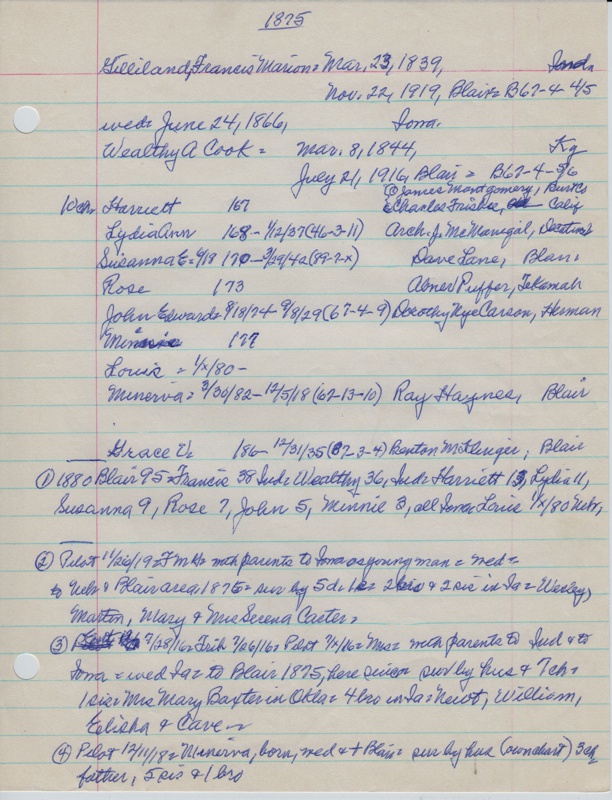 1875
Gilliland, Francis Marion = Mar. 23, 1839, Ind.
Nov. 22, 1919, Blair = B67-4-4/5
wed = June 24, 1866, Iowa.
Wealthy A Cook = Mar. 8, 1844, Ky
July 21, 1916, Blair = B67-4-5/6
① James Montgomery, Burt Co
10 ch Harriett 167 & Charles Frisbie, Calif
Lydia Ann 168 - 1/2/37 (46-3-11) Arch. J. McManegal,
Susanna E = 9/18 170 - 3/29/42 (89-2-x) Dave Lane, Blair
Rose 173 Abner Puffer, Tekamah
John Edward = 8/18/74 - 9/8/29 (67-4-9) Dorothy Nye Carson, Herman
Minnie 177
Louis = 1/x/80 -
Minerva = 3/30/82 - 12/5/18 (62-13-10) Ray Haynes, Blair
Grace V. 186 - 12/31/35 (87-3-4) Benton McClinger, Blair
① 1880 Blair 95 = Francis 38 Ind = Wealthy 36, Ind = Harriett 13, Lydia 11,
Susanna 9, Rose 7, John 5, Minnie 3, all Iowa Louis 1/x/80 Nebr,
② Pilot 11/26/19 = F M H = with parents to Iowa as young man = wed =
to Nebr & Blair area, 1875 = sur by 5 d, 1 s = 2 bro & 2 sis in Ia = Wesley,
Martin, Mary & Mrs Serena Carter =
③ 7/28/16 = Trib 7/26/16 = Pilot 7/x/16 = Mrs = with parents to Ind & to
Iowa = wed Ia = to Blair 1875, here since = sur by hus & 7 ch =
1 sis = Mrs Mary Baxter in Okla = 4 bro in Ia = Newt, William,
Elisha & Cave
④ Pilot 12/11/18 = Minerva, born, wed & + Blair = sur by hus (own chart) 3 ch
father, 5 sis & 1 bro